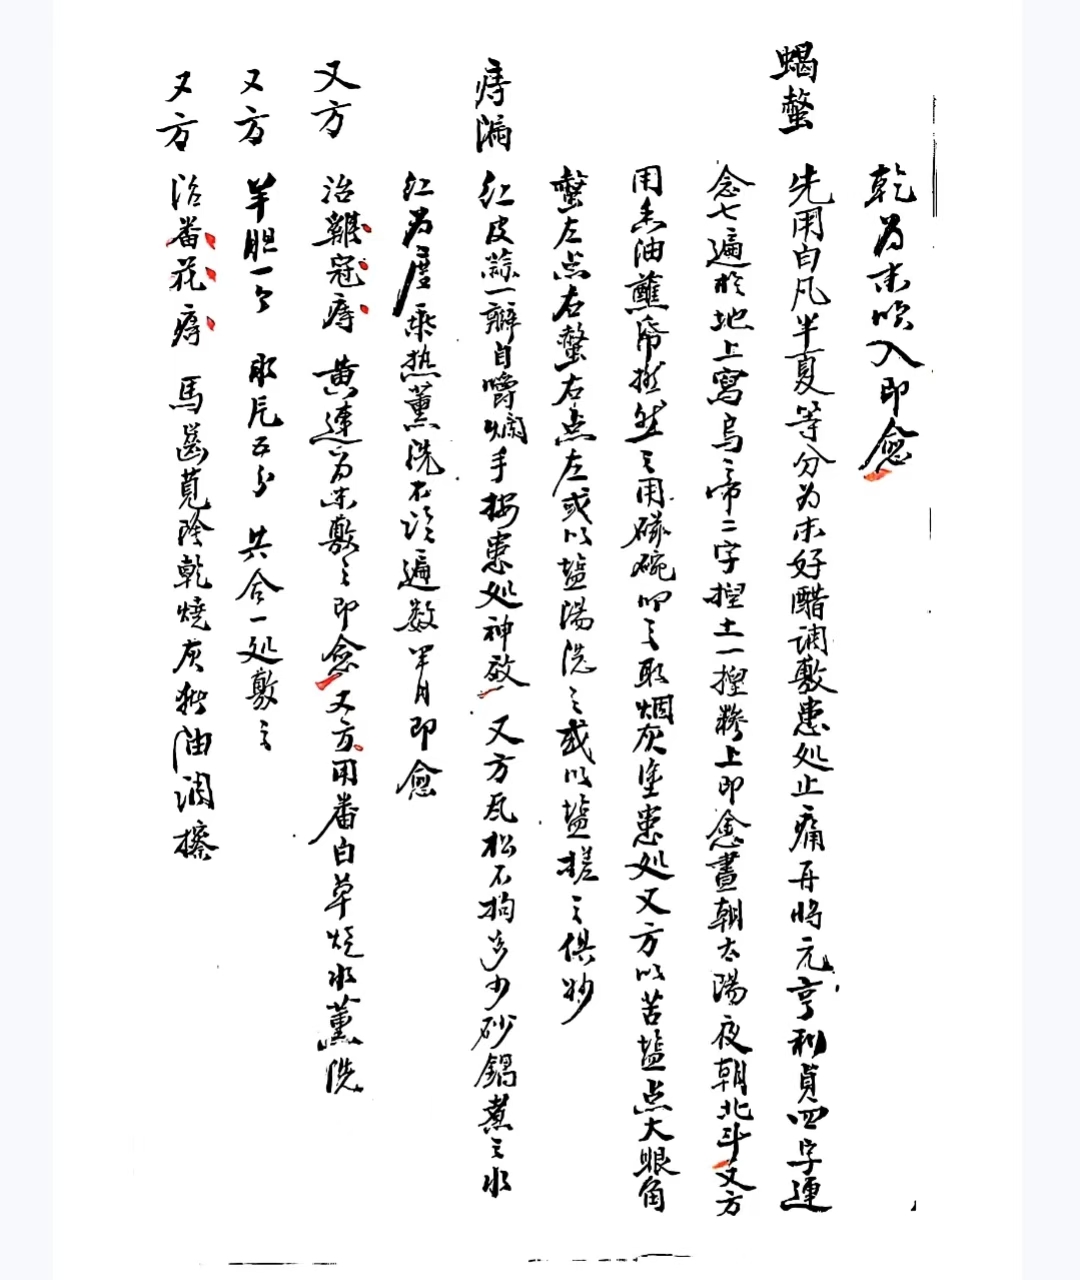 乾为末吹入即愈
蝎螫
先用白凡半夏等分为末好醋调敷患处止痛再将元亨利貞四字連
念七遍於地上寫烏帝二字揑土一揑糁上即愈晝朝太陽夜朝北斗又方
用香油蘸帋撚然之用磁碗叩之取烟灰塗患处又方以苦盐点大眼角
螫左点右螫右点左或以盐湯洗之或以盐搓之俱妙
痔漏
红皮蒜一瓣自嚼烂手按患处神效 又方瓦松不拘多少砂鍋煮之水
红为度乘热薰洗不论遍数半月即愈
又方
治雞冠痔 黄連为末敷之即愈又方用番白草烧水薰洗
又方
羊胆一个 氷片五分 共合一处敷之
又方
治番花痔 馬齒莧陰乾燒灰猪油调擦